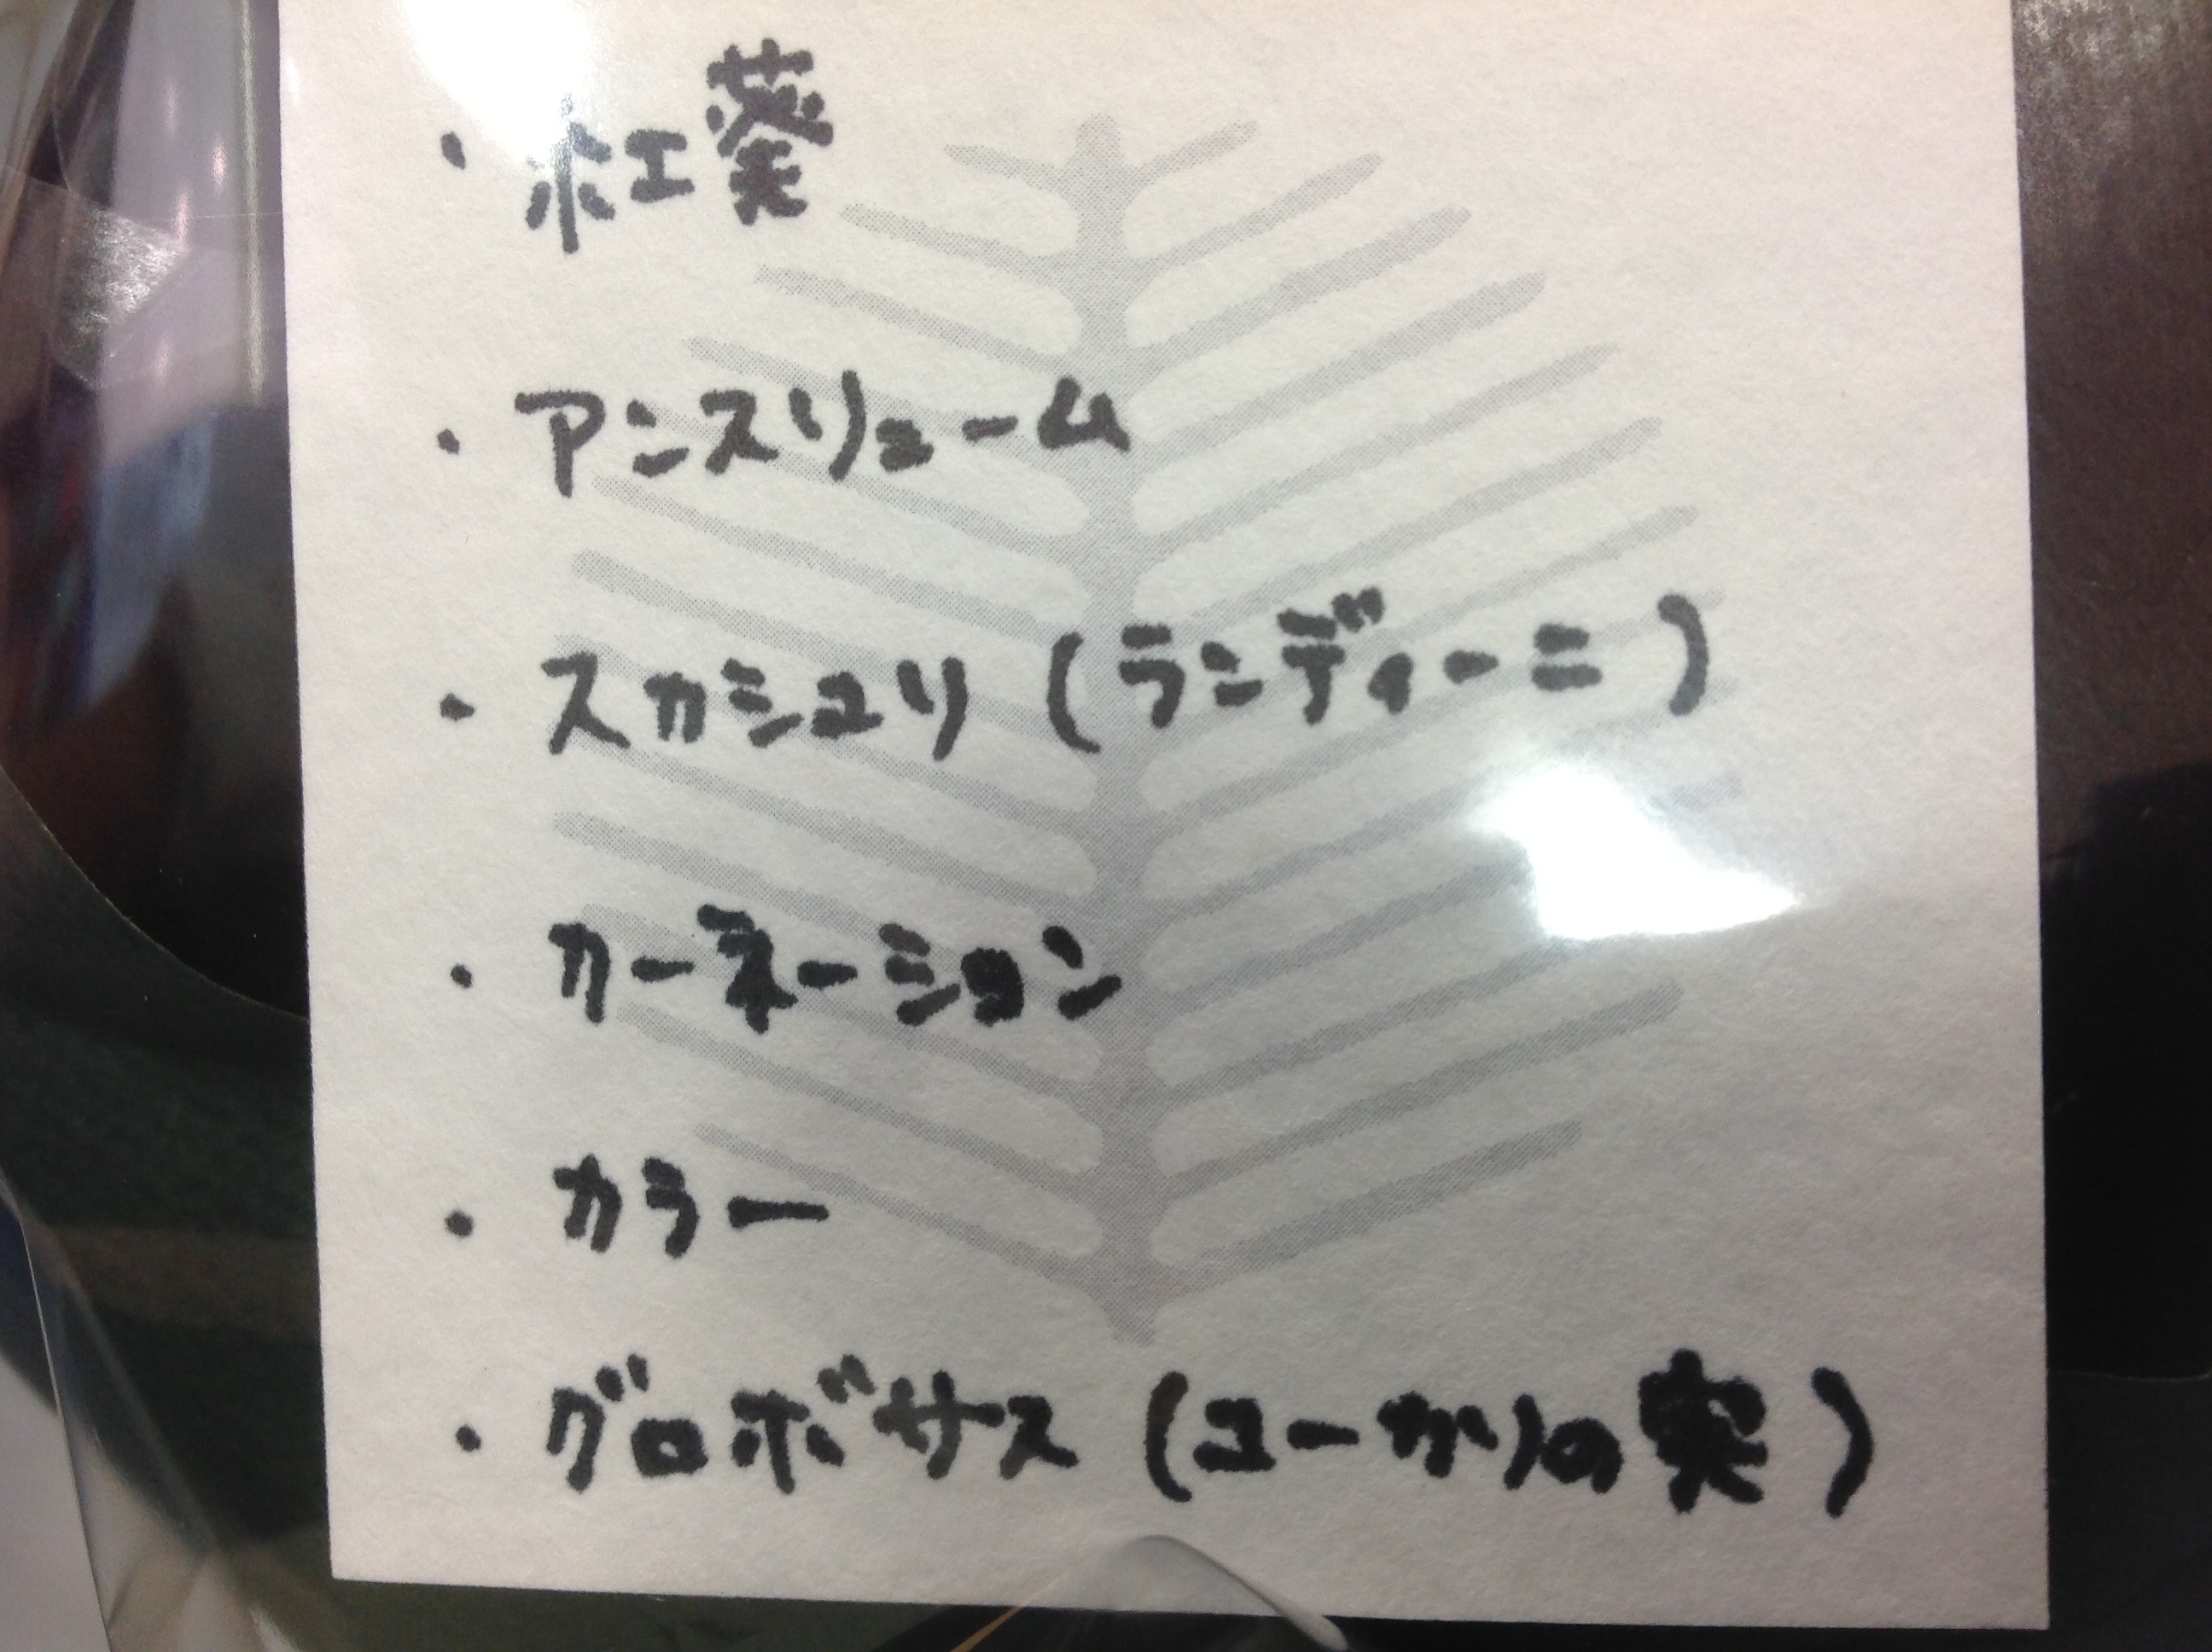 ・紅葉
・アンスリューム
・スカシユリ（ランディーニ）
・カーネーション
・カラー
・グロボサス（ユーカリの実）